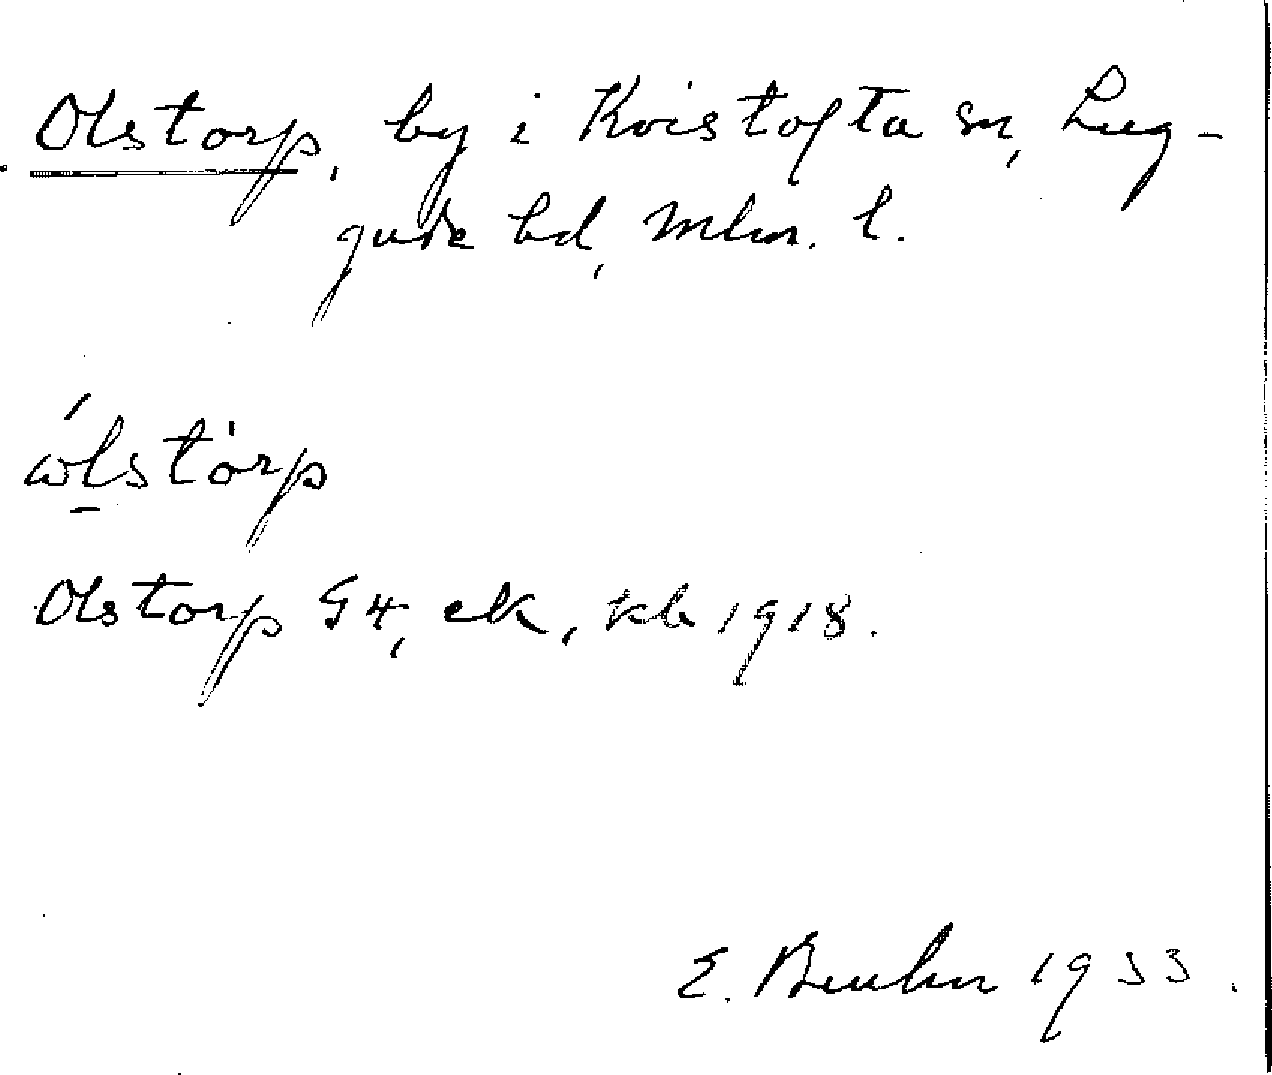 Olstorp, by i Kvistofta sn, Lug-
gude hd, Mlm. l.
ωlstorp
Olstorp G4, ek, kb 1918.
E. 1933.